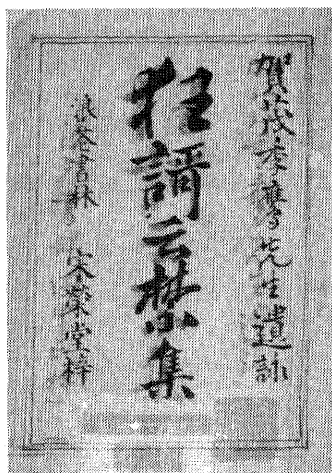 賀茂季鷹先生遺詠
狂謌云禁集
浪華書林 宋榮堂梓